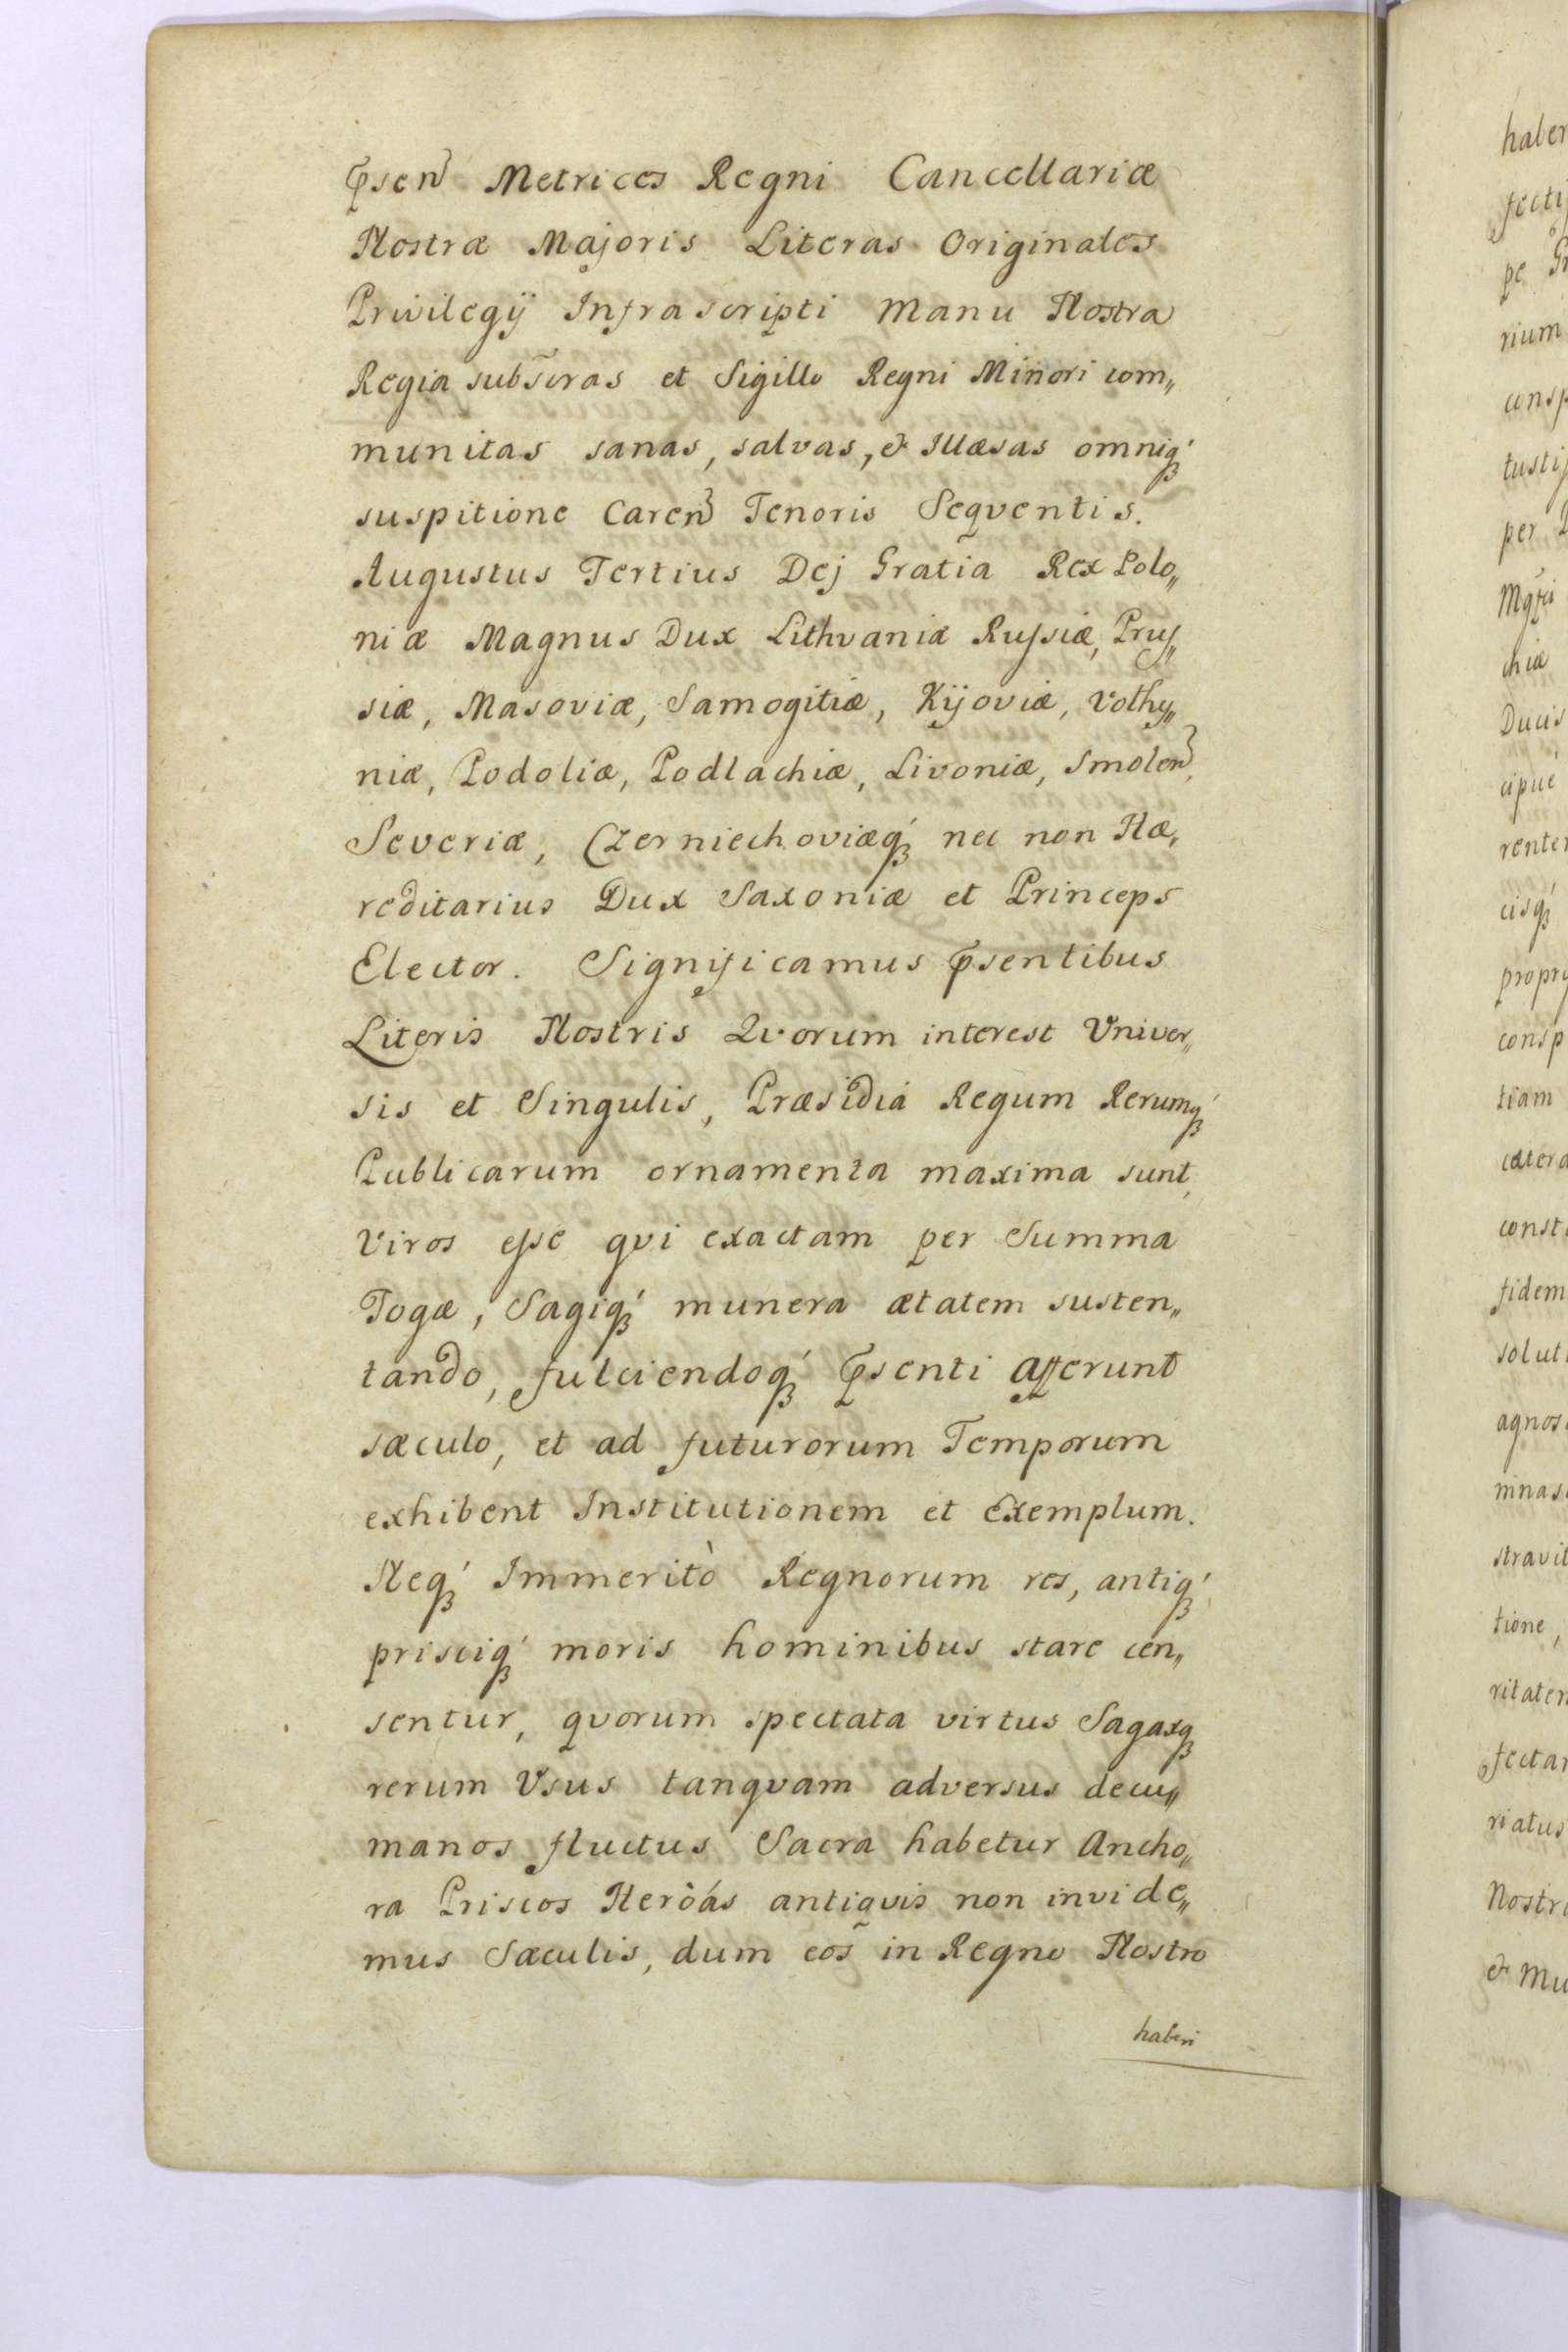 p̃sen Metrices Regni Cancellariæ
Nostræ Majoris Literas Originales
Privilegÿ Infrascripti Manu Nostra
Regia subscras et Sigillo Regni Minori com„
munitas sanas, salvas, & Illæsas omniq́
suspitione Caren Tenoris Seqventis.
Augustus Tertius Dej Gratia Rex Polo„
niæ Magnus Dux Lithvaniæ Russiæ, Prus„
siæ, Masoviæ, Samogitiæ, Kijoviæ, Volhy„
niæ, Podoliæ, Podlachiæ, Livoniæ, Smolen,
Severiæ, Czerniechoviæq́ nec non Hæ„
reditarius Dux Saxoniæ et Princeps
Elector. Significamus p̃sentibus
Literis Nostris Qvorum interest Univer„
sis et Singulis, Præsidia Regum Rerumq́
Publicarum ornamenta maxima sunt,
Viros esse qvi exactam per Summa
Togæ, Sagiq́ munera ætatem susten„
tando, fulciendoq́ p̃senti afferunt
sæculo, et ad futurorum Temporum
exhibent Institutionem et Exemplum.
Neq́ Immeritò Regnorum res, antiq́,
prisciq́ moris hominibus stare cen„
sentur, qvorum spectata virtus Sagaxq
rerum Usus tanqvam adversus decu„
manos fluctus Sacra habetur Ancho„
ra Priscos Heròás antiqvis non invide„
mus Sæculis, dum eos̃ in Regno Nostro
haberi
haber
fecti
pe Gr
rium
consp
tusti
per
Mgfci
chiæ
Ducis
cipue
renter
cisq́
propry
consp
tiam
cætera
consti
fidem
solut
agnos
mnas
stravit
tione,
ritatem
fectar
riatus
Nostri
& Mu